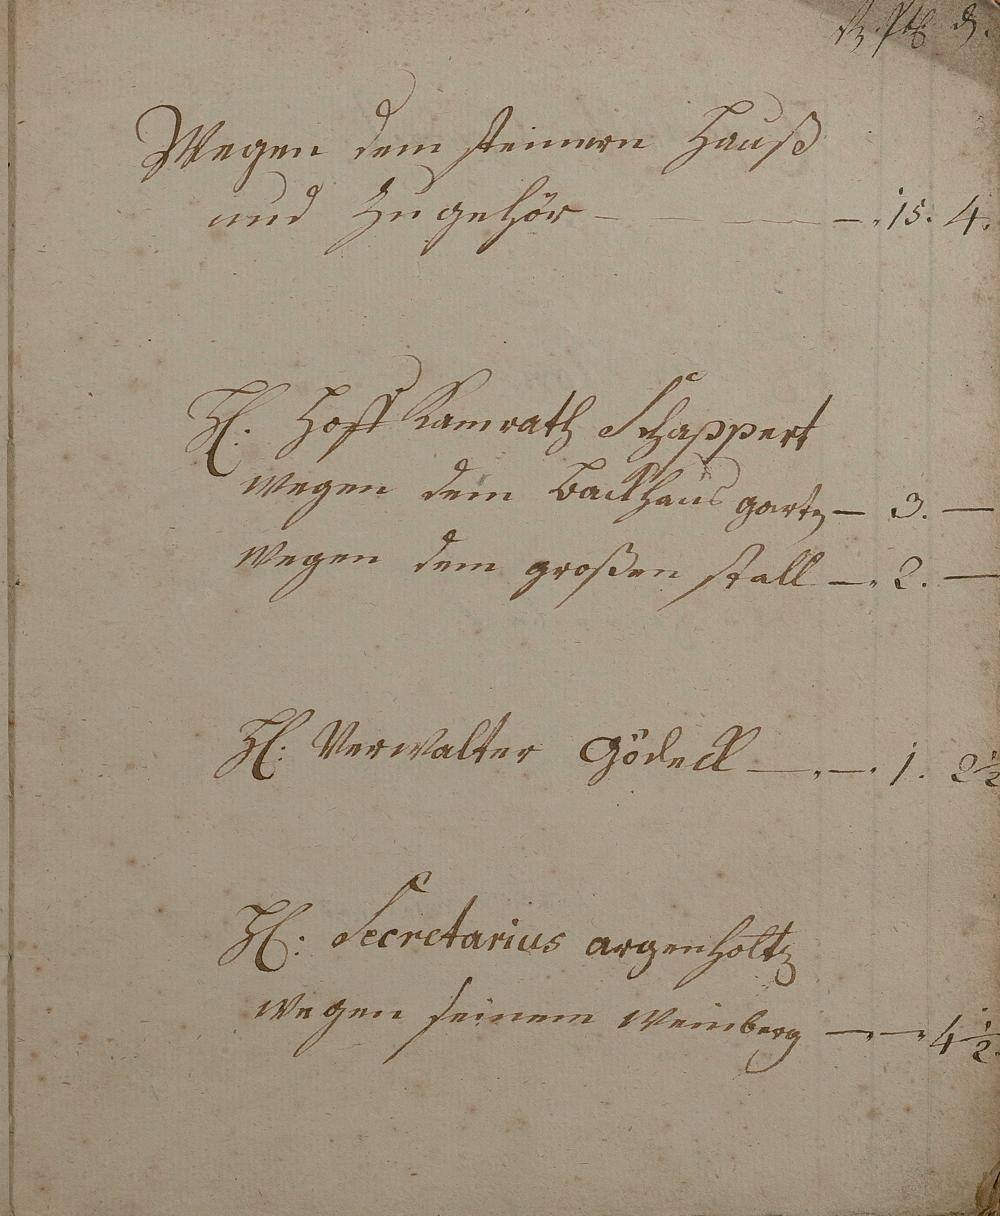 Wegen dem steinern Hauß
und Zugehör — — — . 15. 4.
H. Hoff Kamrath Schappert
wegen dem Backhaus garten — 3. —
wegen dem großen stall — . 2. —
H. Verwalter Gödeck — . — . 1. 2½
H. Secretarius argenholtz
wegen seinem weinberg — . — . 4½.